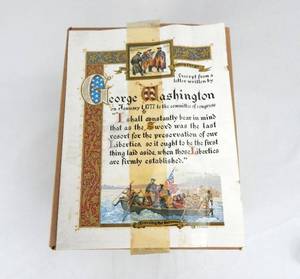 Excerpt from a
letter written by
George Washington
on January 1, 1777 to the committee of congress
"I shall constantly bear in mind
that as the Sword was the last
resort for the preservation of our
Liberties, so it ought to be the first
thing laid aside, when those Liberties
are firmly established."